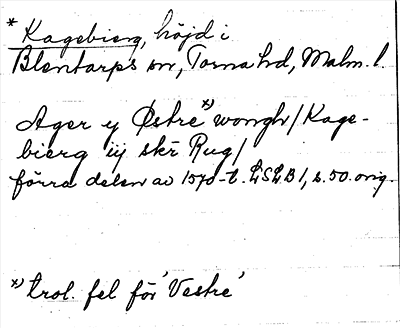 * Kagebierg, höjd i
Blentarps sn, Torna hd, Malm. l.
Ager y Østre *) wongh / Kage-
bierg iij skr Rug /
förra delen av 1570-t. LSLB 1, s. 50. orig.
*) trol. fel för 'Vestre'